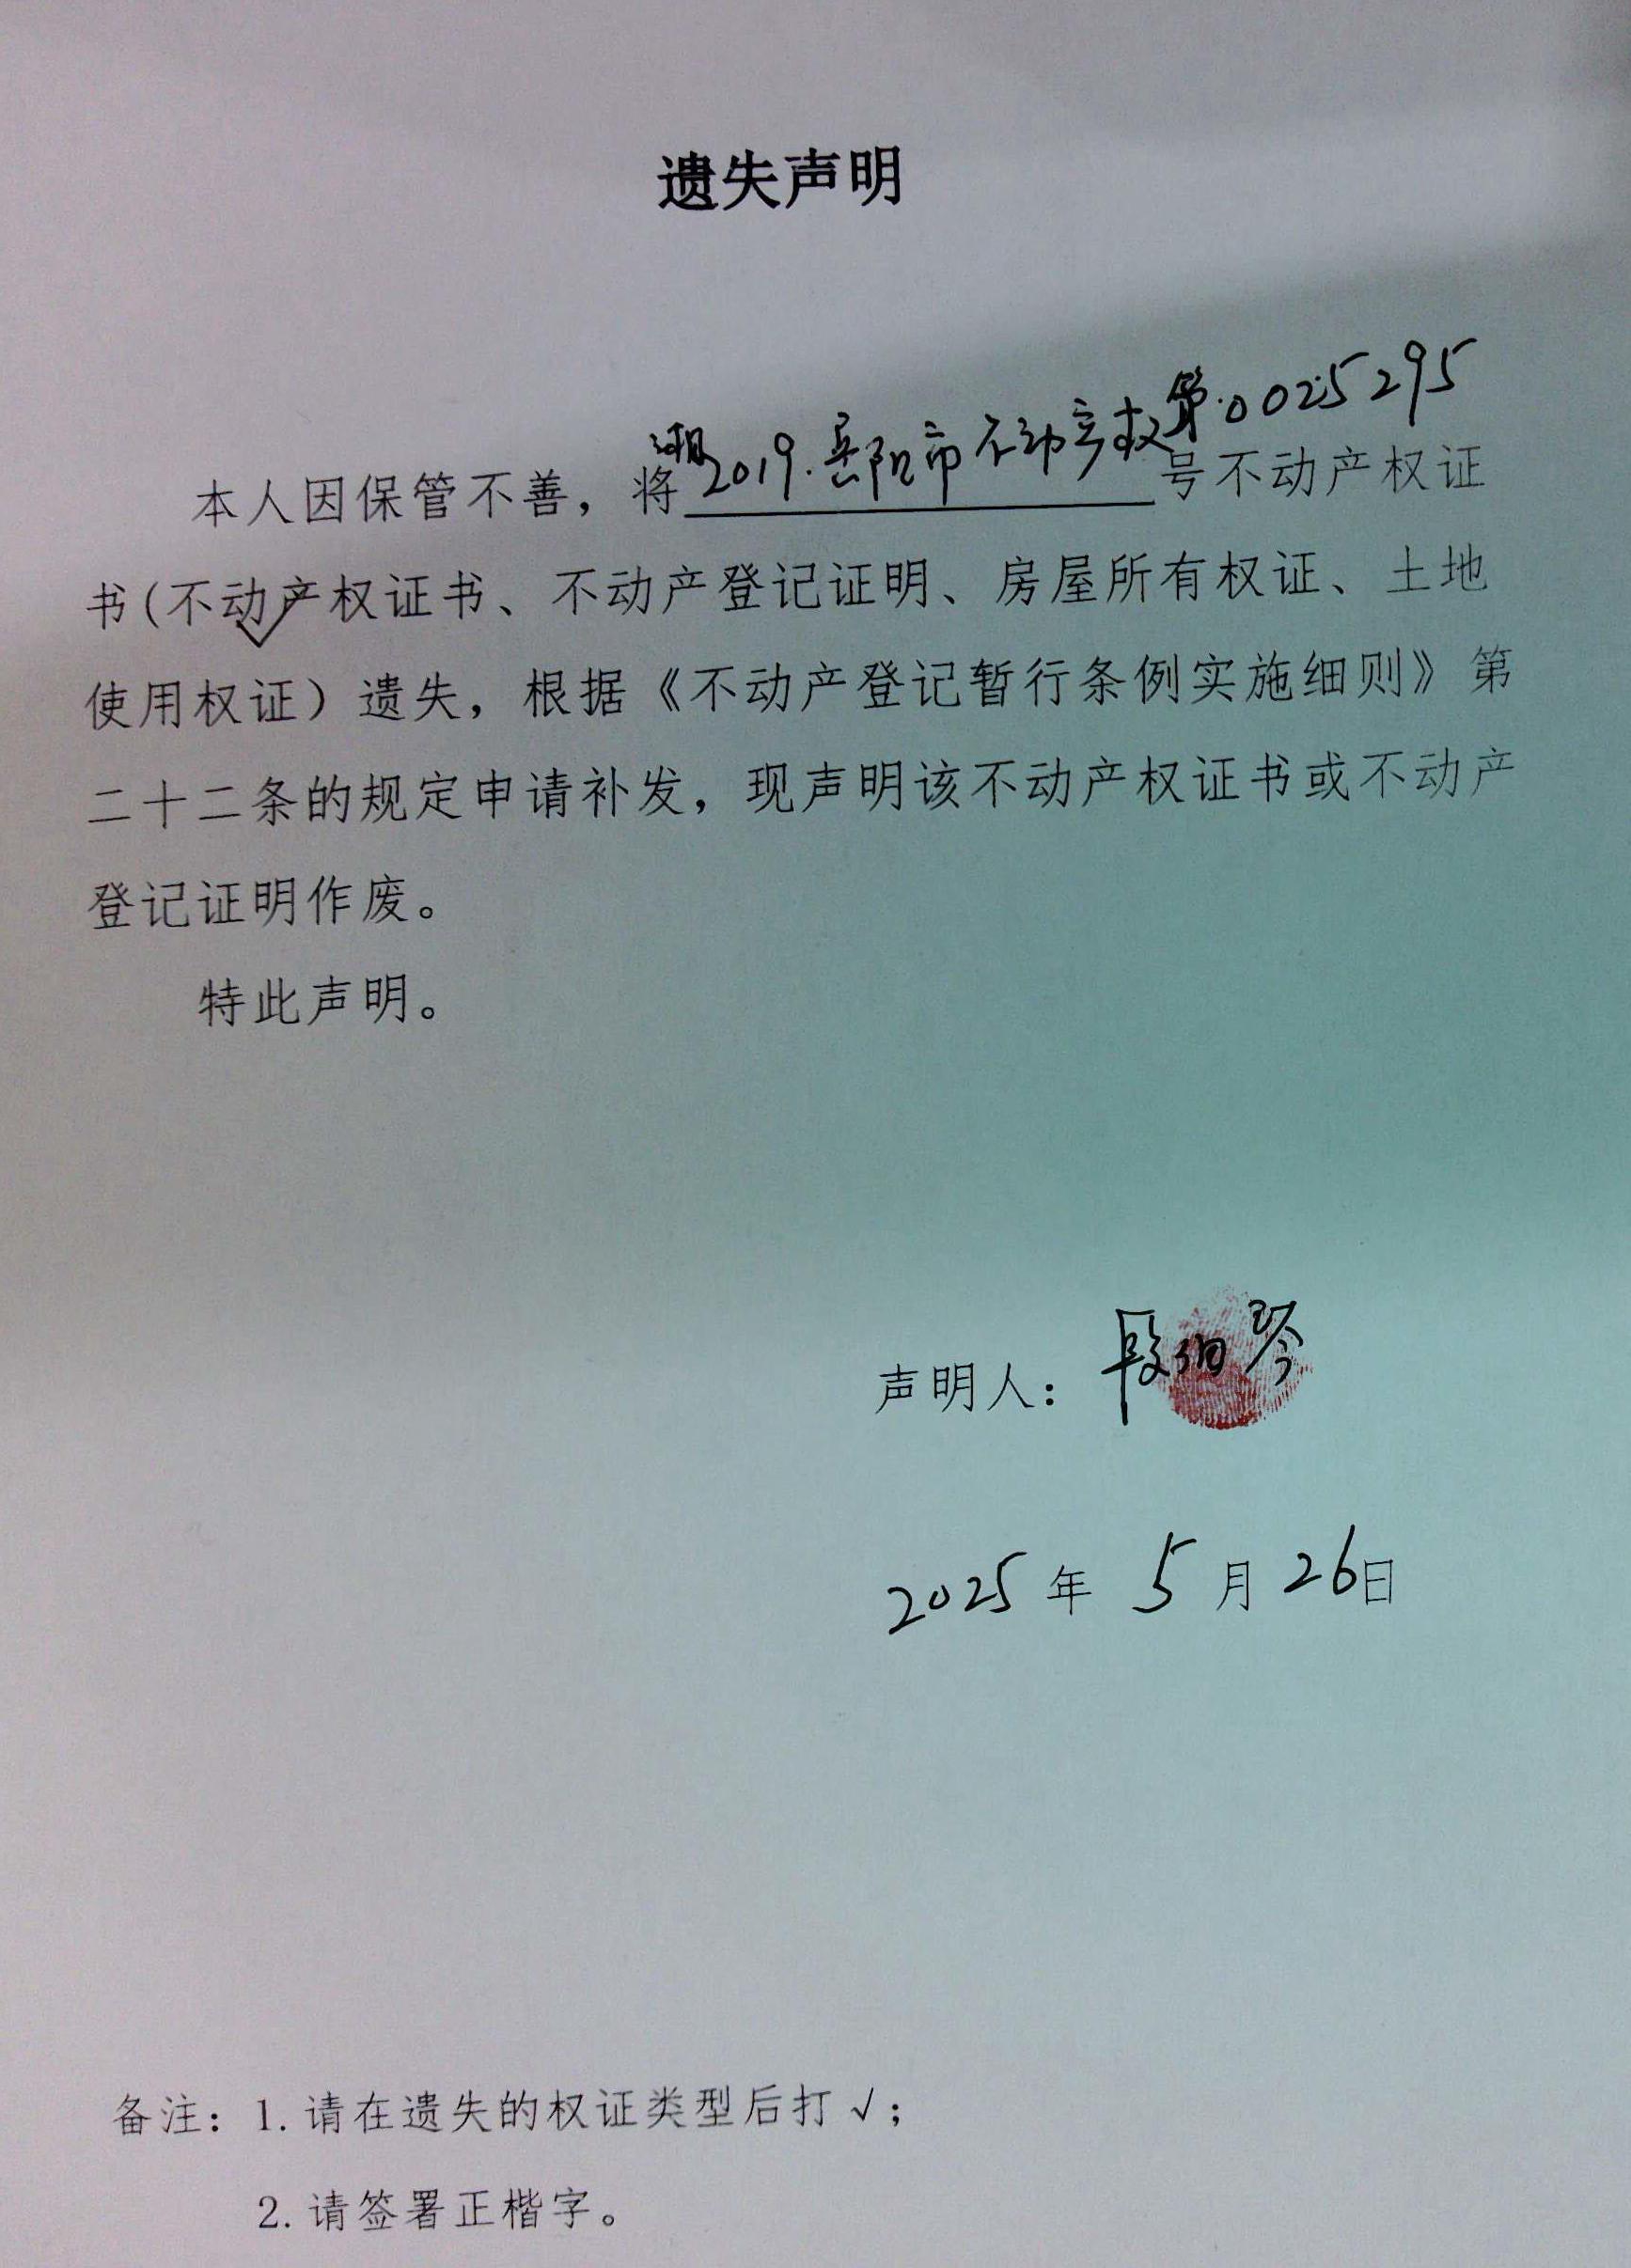 遗失声明
本人因保管不善，将湘2019.岳阳市不动产权第.0025295号不动产权证
书(不动产权证书、不动产登记证明、房屋所有权证、土地
√
使用权证）遗失，根据《不动产登记暂行条例实施细则》第
二十二条的规定申请补发，现声明该不动产权证书或不动产
登记证明作废。
特此声明。
声明人：段 琴
2025年 5月 26日
备注：1.请在遗失的权证类型后打√；
2.请签署正楷字。